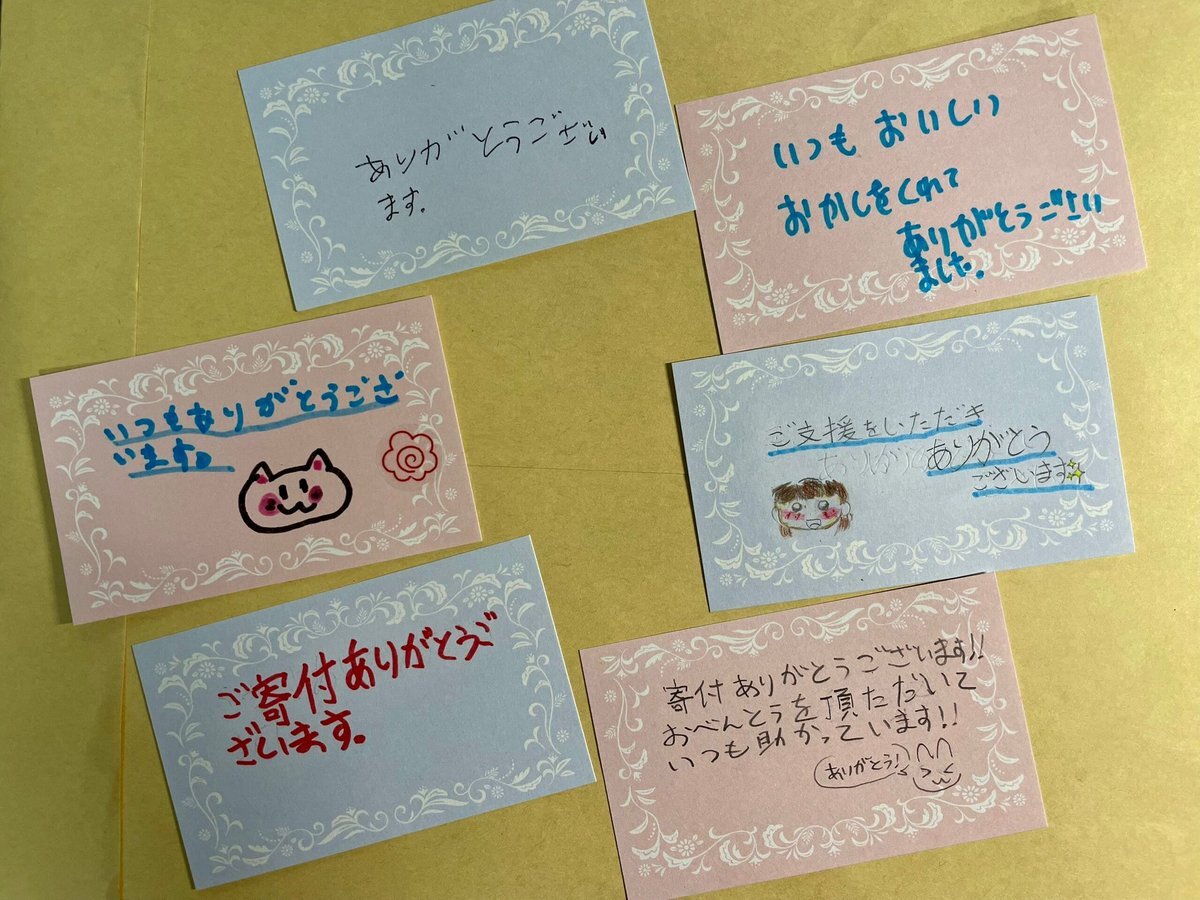 ありがとうござい
ます。
いつも おいしい
おかしをくれて
ありがとうござい
ました。
いつもありがとうござ
います。
ご支援をいただき
ありがとう
ございます
ご寄付ありがとうご
ざいます。
寄付ありがとうございます!!
おべんとうを頂ただいて
いつも助かっています!!
ありがとう!